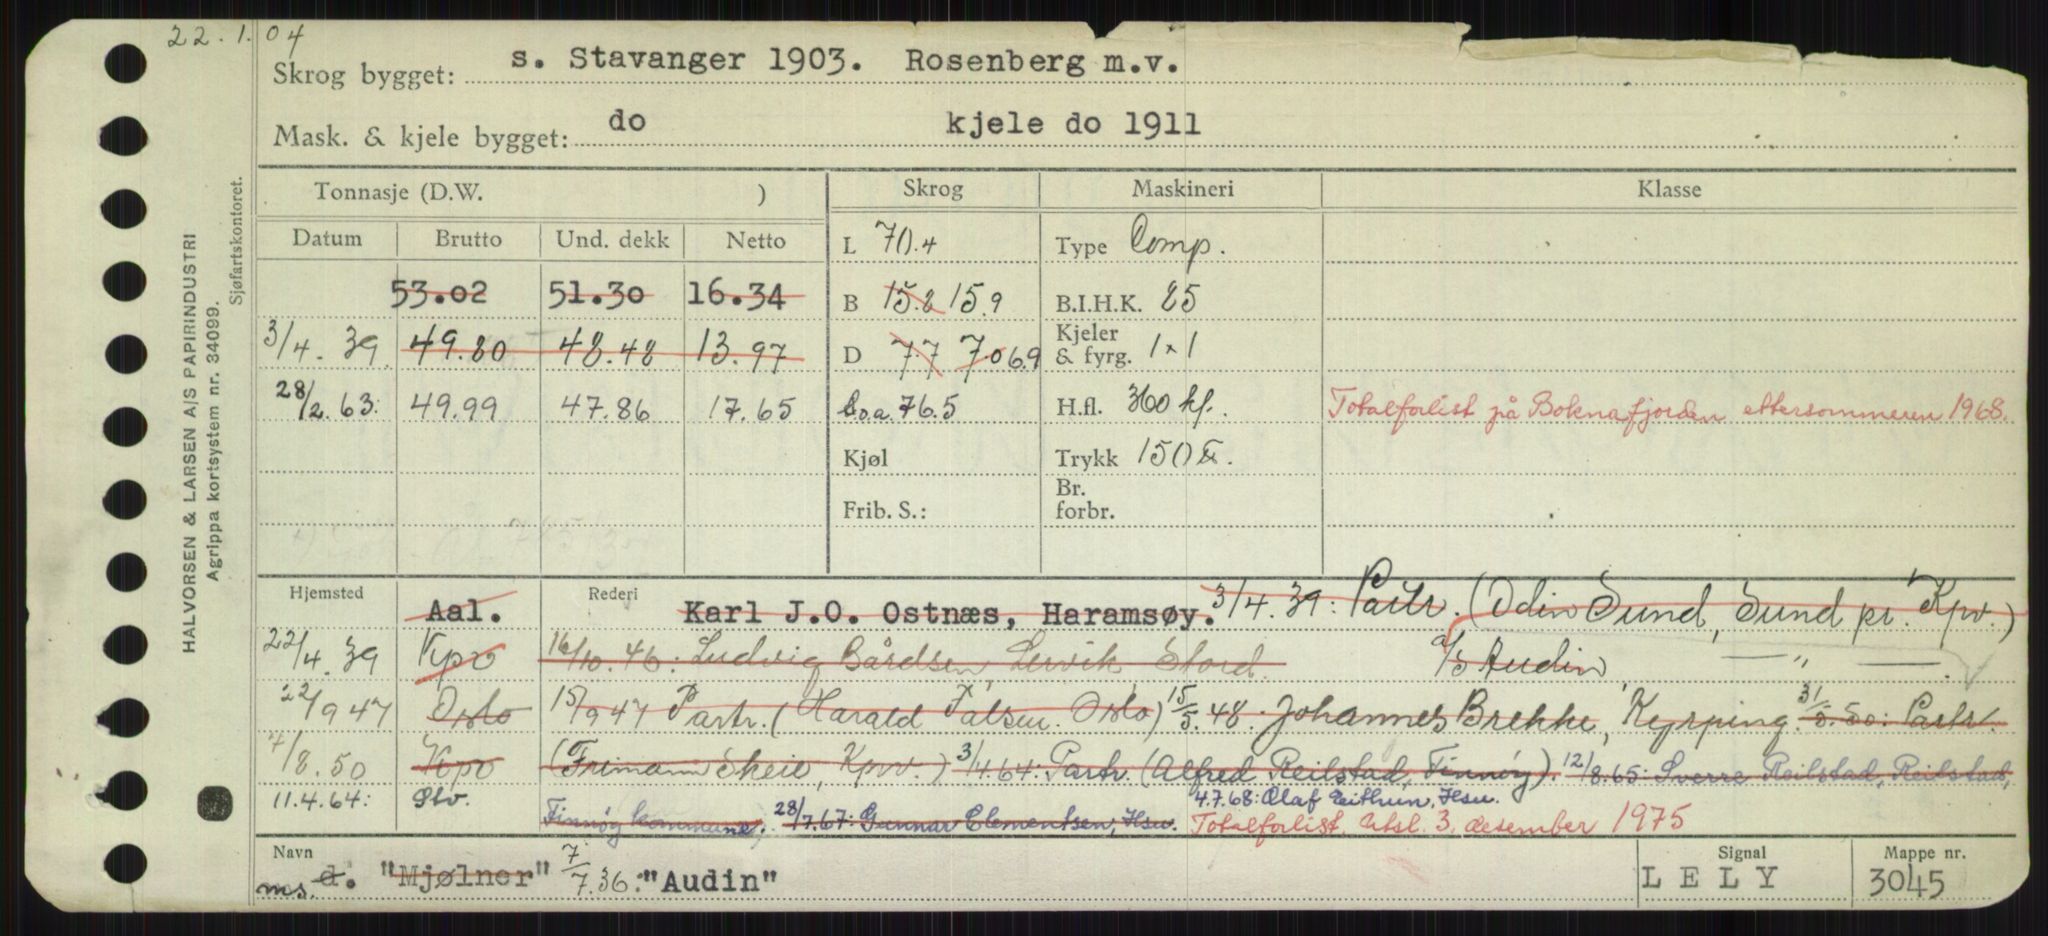 22.1.04
Skrog bygget: s. Stavanger 1903. Rosenberg m.v.
Mask. & kjele bygget: do kjele do 1911
HALVORSEN & LARSEN A/S PAPIRINDUSTRI
Agrippa kortsystem nr. 34099.
Sjøfartskontoret.
Tonnasje (D.W. ) Skrog Maskineri Klasse
Datum Brutto Und. dekk Netto L 70.4 Type Comp.
53.02 51.30 16.34 B 15.2 15.9 B.I.H.K. 25
3/4. 39 49.80 48.48 13.97 D 7.7 7.0 6.9 Kjeler & fyrg. 1x1
28/2.63: 49.99 47.86 17.65 L.o.a. 76.5 H.fl. 360 kf. Totalforlist på Boknafjorden ettersommeren 1968.
Kjøl Trykk 150
Frib. S.: Br. forbr.
Hjemsted Aal. Rederi Karl J.O. Ostnæs, Haramsøy. 3/4.39: Partr. (Odin Sund, Sund pr. Kpv.)
22/4.39 Kpv 16/10.46: Ludvig Bårdsen, Lervik, Stord. a/s Audin — " —
22/9 47 Oslo 15/9 47 Partr. (Harald Falsen. Oslo) 15/5.48. Johannes Brekke, Kyrping. 31/5.50: Partr.
7/8.50 Kpv (Frimann Skeie, Kpv.) 3/4.64: Partr. (Alfred Reilstad, Finnøy). 12/8.65: Sverre Reilstad, Reilstad,
11.4.64: Stv. Finnøy kommune. 28/7.67: Gunnar Clementsen, Hsu. 4.7.68: Olaf Eithun, Hsu.
Totalforlist. Utsl. 3. desember 1975
Navn ms. d. "Mjølner" 7/7.36: "Audin" Signal LELY Mappe nr. 3045